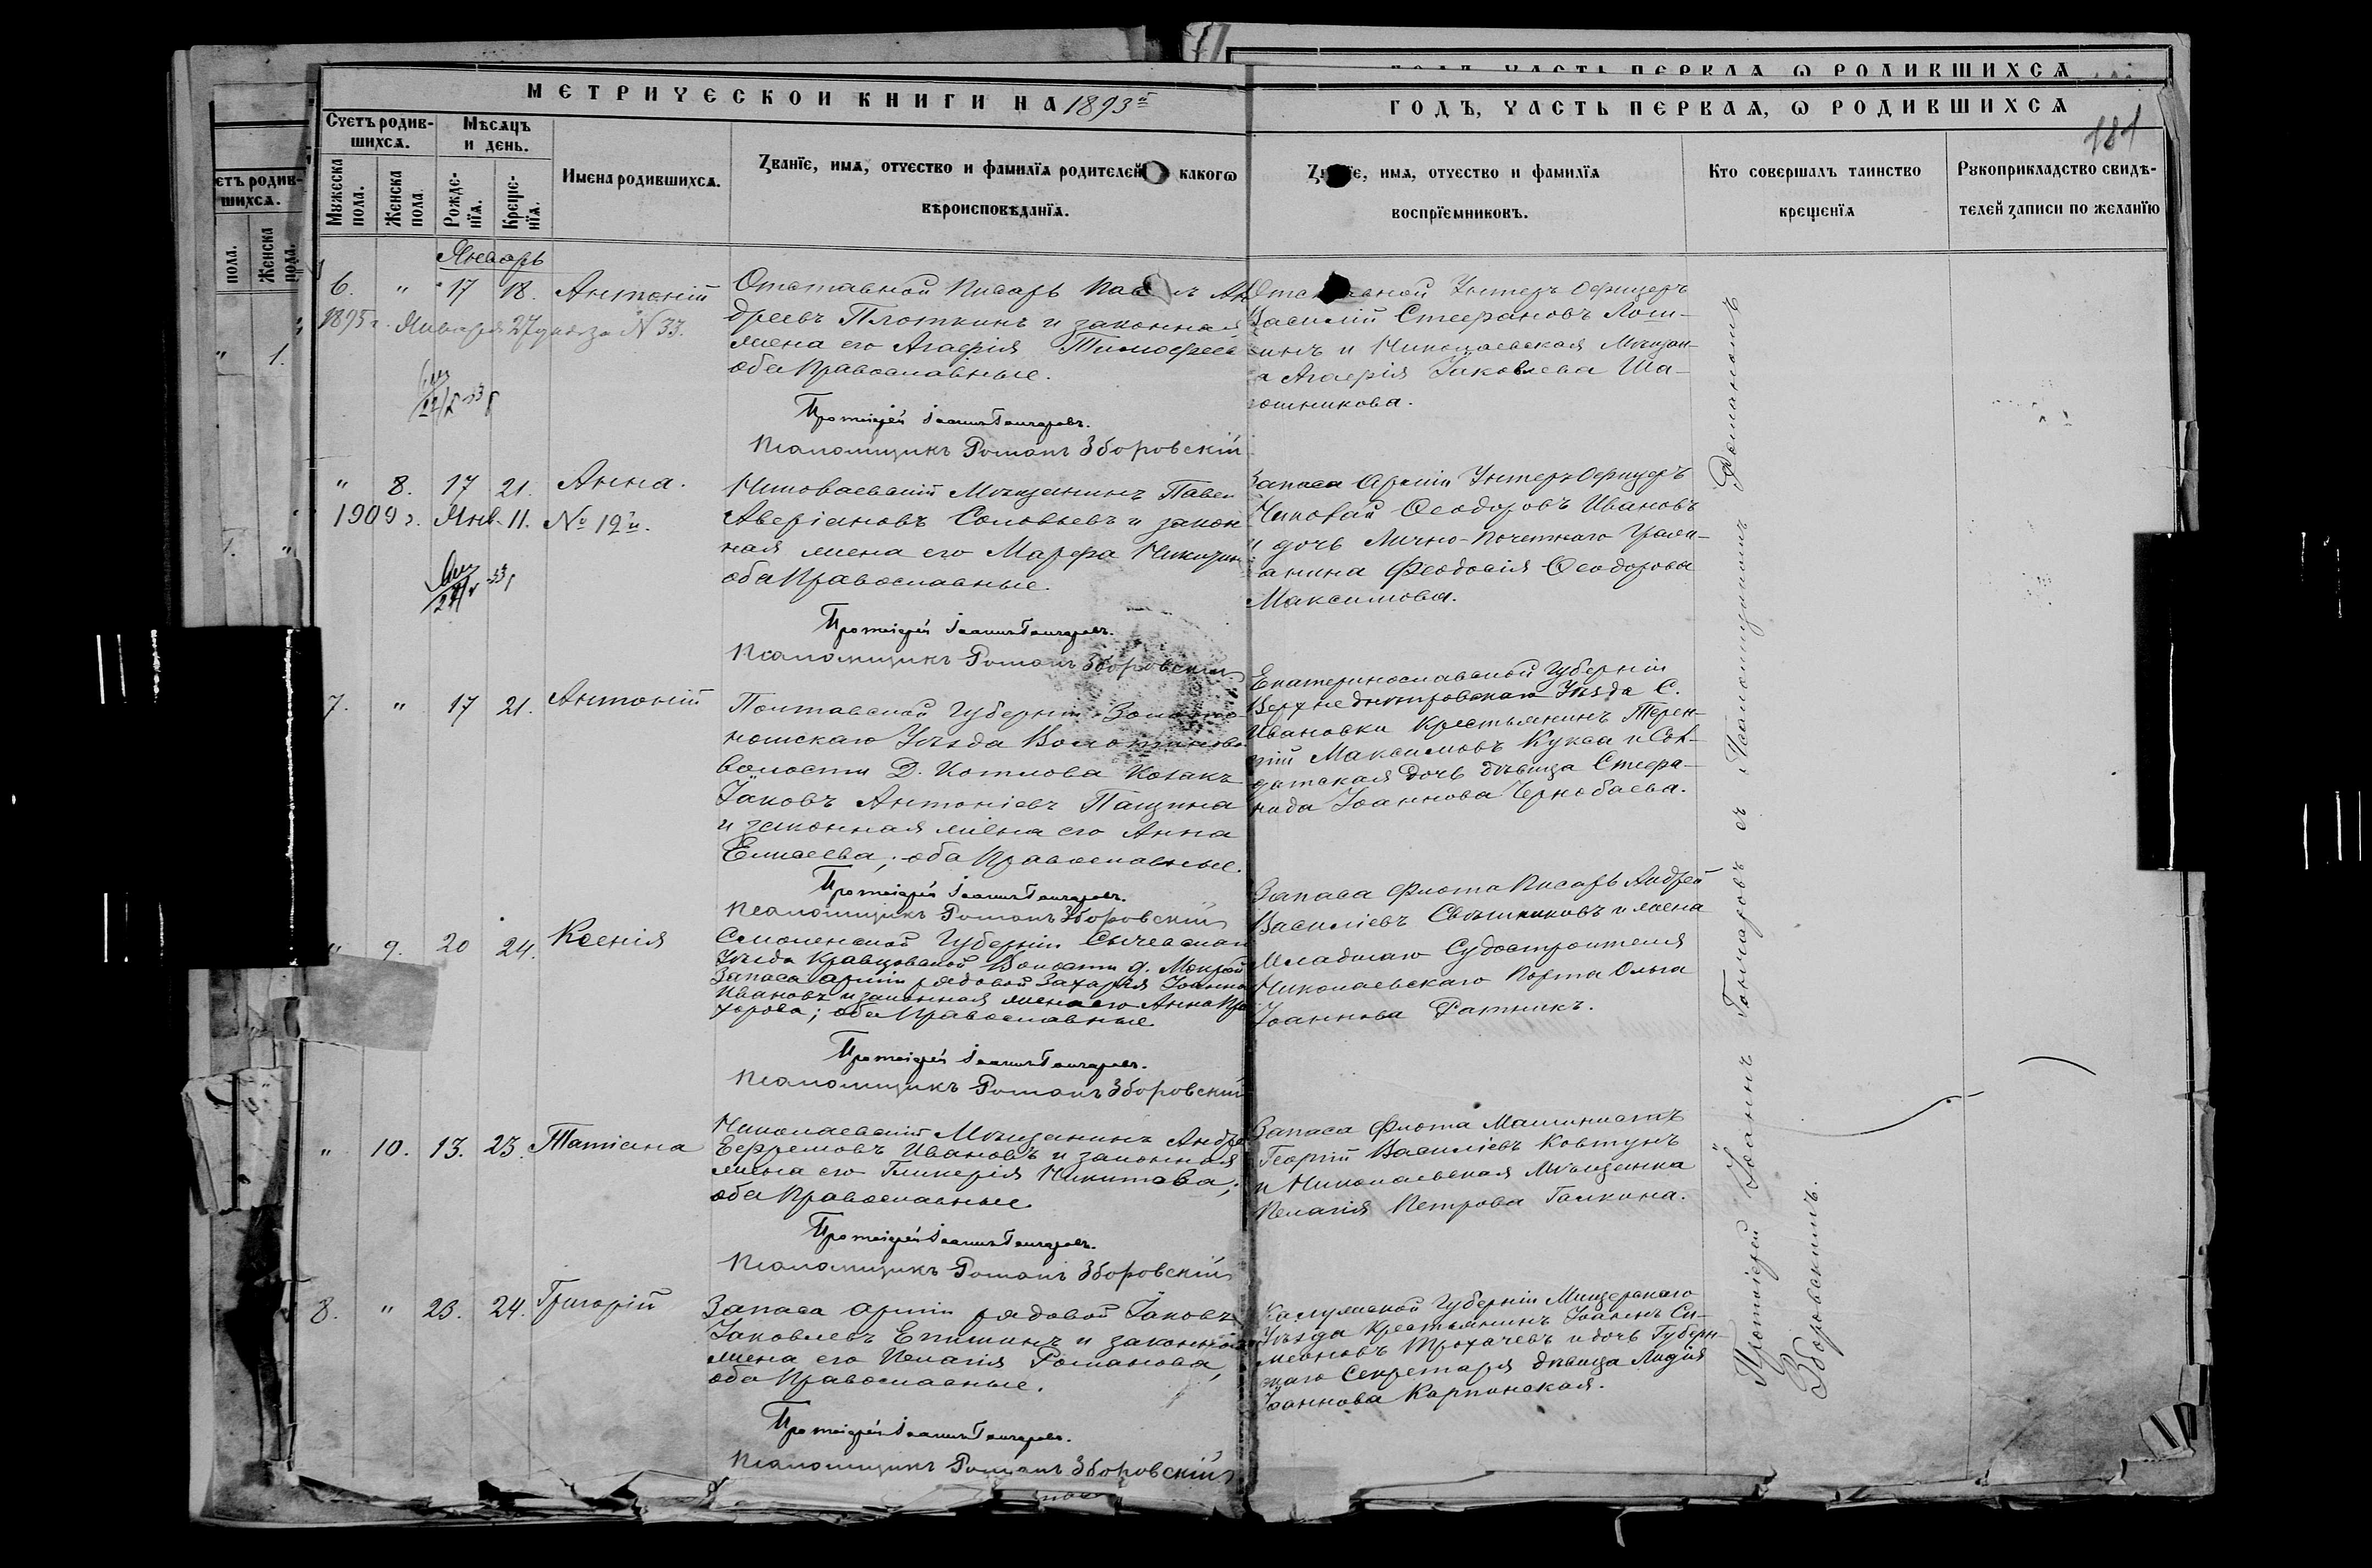 МЕТРИЧЕСКОЙ КНИГИ НА 1893й
ГОДЪ, ЧАСТЬ ПЕРВАѦ, Ѡ РОДИВШИХСѦ
181
Счетъ родив-
шихсѧ.
Мѣсѧцъ
и день.
Мꙋжеска
пола.
Женска
пола.
Рожде-
нїѧ.
Креще-
нїѧ.
Имена родившихсѧ.
Ꙁванїе, имѧ, отчество и фамилїѧ родителей какогѡ
вѣроисповѣданїѧ.
имѧ, отчество и фамилїѧ
воспрїемниковъ.
Кто совершалъ таинство
крещенїѧ
Рꙋкоприкладство свидѣ-
телей ꙁаписи по желанїю
Январь
6. " 17 18. Антоній
1895 г. Января 27 указа N 33.
Отставной Писарь
дреевъ Плоткинъ и законная
жена его Агафія Тимофеева
оба Православные.
Протоіерей Іоаннъ Гончаровъ.
Псаломщикъ Романъ Зборовскій
Унтеръ Офицеръ
Василій Стефановъ
и Николаевская Мѣщан-
Агафія Іаковлева Ша-
пошникова.
" 8. 17 21. Анна.
1909 г. Янв. 11. № 19й.
Николаевскій Мѣщанинъ Павел
Аверіановъ Соловьевъ и закон
ная жена его Марфа
оба Православные.
Протоіерей Іоаннъ Гончаровъ.
Псаломщикъ Романъ Зборовскій
Запаса Арміи Унтеръ Офицеръ
Николай Ѳеодоровъ Ивановъ
и дочь Лично-Почетнаго Граж-
данина Феодосія Ѳеодорова
Максимова.
7. " 17 21. Антоній
Полтавской Губерніи Золото-
ношскаго Уѣзда
волости Д. Котлова Козакъ
Іаковъ Антоніевъ Пащина
и законная жена его Анна
Елисеева; оба Православные.
Протоіерей Іоаннъ Гончаровъ.
Псаломщикъ Романъ Зборовскій
Екатеринославской Губерніи
Верхнеднѣпровскаго Уѣзда С.
Ивановки Крестьянинъ Терен-
тій Максимовъ Кукса и Сол-
датская дочь дѣвица Стефа-
нида Іоаннова Чернобаева.
" 9. 20 24. Ксенія
Смоленской Губерніи Сычевскаго
Уѣзда Кравцовской Волости д. Мокрой
Запаса арміи рядовой Захарія
Ивановъ и законная жена его Анна Про
хорова; оба Православные
Протоіерей Іоаннъ Гончаровъ.
Псаломщикъ Романъ Зборовскій
Запаса Флота Писарь Андрей
Василіевъ Свѣшниковъ и жена
Младшаго Судостроителя
Николаевскаго Порта Ольга
Іоаннова Ратникъ.
" 10. 13. 23. Татіана
Николаевскій Мѣщанинъ Андре
Ефремовъ Ивановъ и законная
жена его Гликерія Никитова;
оба Православные.
Протоіерей Іоаннъ Гончаровъ.
Псаломщикъ Романъ Зборовскій
Запаса Флота Машинистъ
Георгій Василіевъ Ковтунъ
и Николаевская Мѣщанка
Пелагія Петрова Галкина.
8. " 23. 24. Григорій
Запаса арміи рядовой Іаковъ
Іаковлевъ Епишинъ и законная
жена его Пелагія Романова,
оба Православные.
Протоіерей Іоаннъ Гончаровъ.
Псаломщикъ Романъ Зборовскій
Калужской Губерніи
Уѣзда Крестьянинъ Іоаннъ Си-
меоновъ Трохачевъ и дочь Губерн-
скаго Секретаря дѣвица Лидія
Іоаннова Карпинская.
Протоіерей Іоаннъ Гончаровъ съ Псаломщикомъ Романомъ
Зборовскимъ.